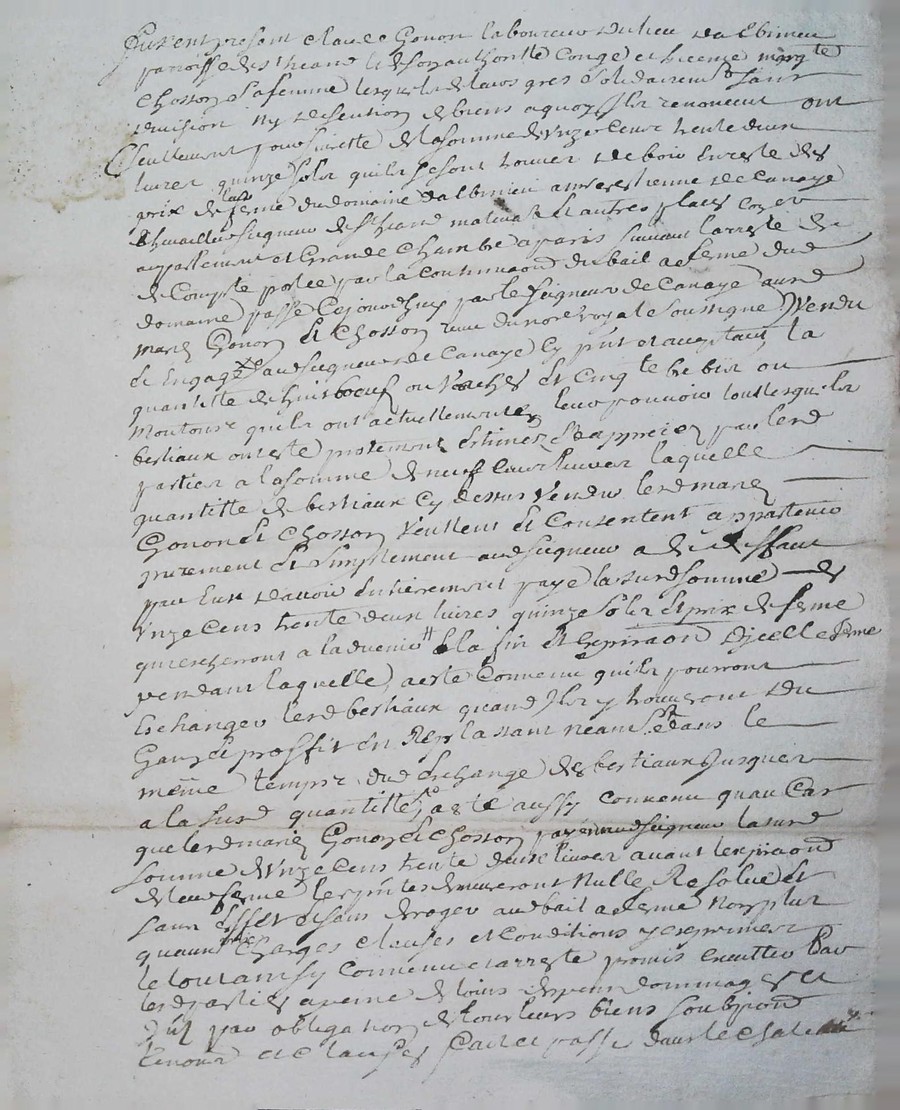 Furent presents claude Gonon laboureur du lieu de
parroisse de st heand et de son authorite Conge et licence margte
Chosson sa femme lesquels de leurs gres solidairemt sans
division ny discution de biens a quoy Ils renoncent ont
seullement pour surette de la somme de unze Cent trente deux
livres quinze sols quils se sont trouver debvoir En reste des
prix de leur ferme du domaine d'albinieu a mre estienne de Canaye
Chevaillier seigneur de st heand et autres places Coner
au parlement et Grande Chambre a paris suivant larreste de
de Compte portee par la Continuaon du bail a ferme dud
domaine passe Cejourdhuy par le seigneur de Canaye ausd
maries Gonon Et Chosson receu du nore royal soussigne Vendu
Et Engagé aud seigneur de Canaye Cy pnt et acceptant la
quantitte de huit boeufs ou Vaches Et Cinqte brebis ou
Moutons quils ont actuellement En leur pouvoir tous lesquels
bestiaux ont este presentement Estimes Et appreties par lesd
parties a la somme de neuf Cent livres laquelle
quantitte de bestiaux Cy dessus Vendus lesd maries
Gonon Et Chosson Veullent Et Consentent appartenir
purement Et simplement aud seigneur a deffaut
par Eux davoir Entierement paye la susd somme de
Unze Cens trente deux livres quinze sols Et prix de ferme
qui escherront a ladvenir a la fin Et Expiraon dicelle ferme
pendant laquelle a este Convenu quils pourront
Eschanger lesd bestiaux quand Ils y trouveront du
Gain Et proffit En Remplassant neanmt dans le
même temps dud Eschange des bestiaux Jusques
a la susd quantitte, a este aussy convenu quau Cas
que lesd maries Gonon Et Chosson payent aud seigneur la susd
somme de Unze Cens trente deux livres avant lexpiraon
de leur ferme les pntes demeureront Nulle Resolue et
sans Effet Et sans deroger aud bail a ferme non plus
quaux Charges clauses et conditions y exprimees
le tout ainsy convenu et arreste promis executter Par
lesd parties a peine de tous despens dommages et
Int par obligation de tous leurs biens soubzmon
Renon et clauses fait et passe dans le chateau